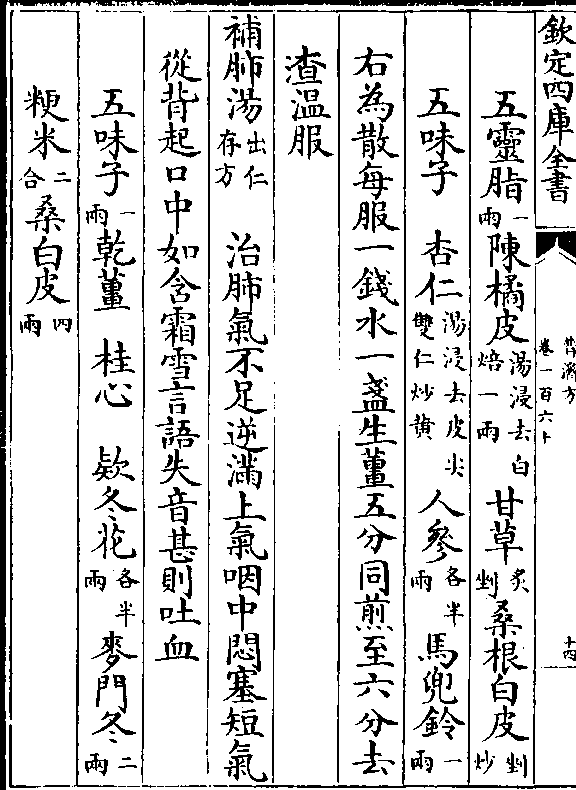 欽定四庫全書
普濟方
卷一百六十
十四
五靈脂一兩陳橘皮湯浸去白焙一兩甘草炙剉桑根白皮剉炒
五味子 杏仁湯浸去皮尖雙仁炒黄人參各半兩馬兜鈴一兩
右為散每服一錢水一盞生薑五分同煎至六分去
渣溫服
補肺湯出仁存方 治肺氣不足逆滿上氣咽中悶塞短氣
從背起口中如含霜雪言語失音甚則吐血
五味子一兩乾薑 桂心 欵冬花各半兩麥門冬二兩
粳米二合桑白皮四兩